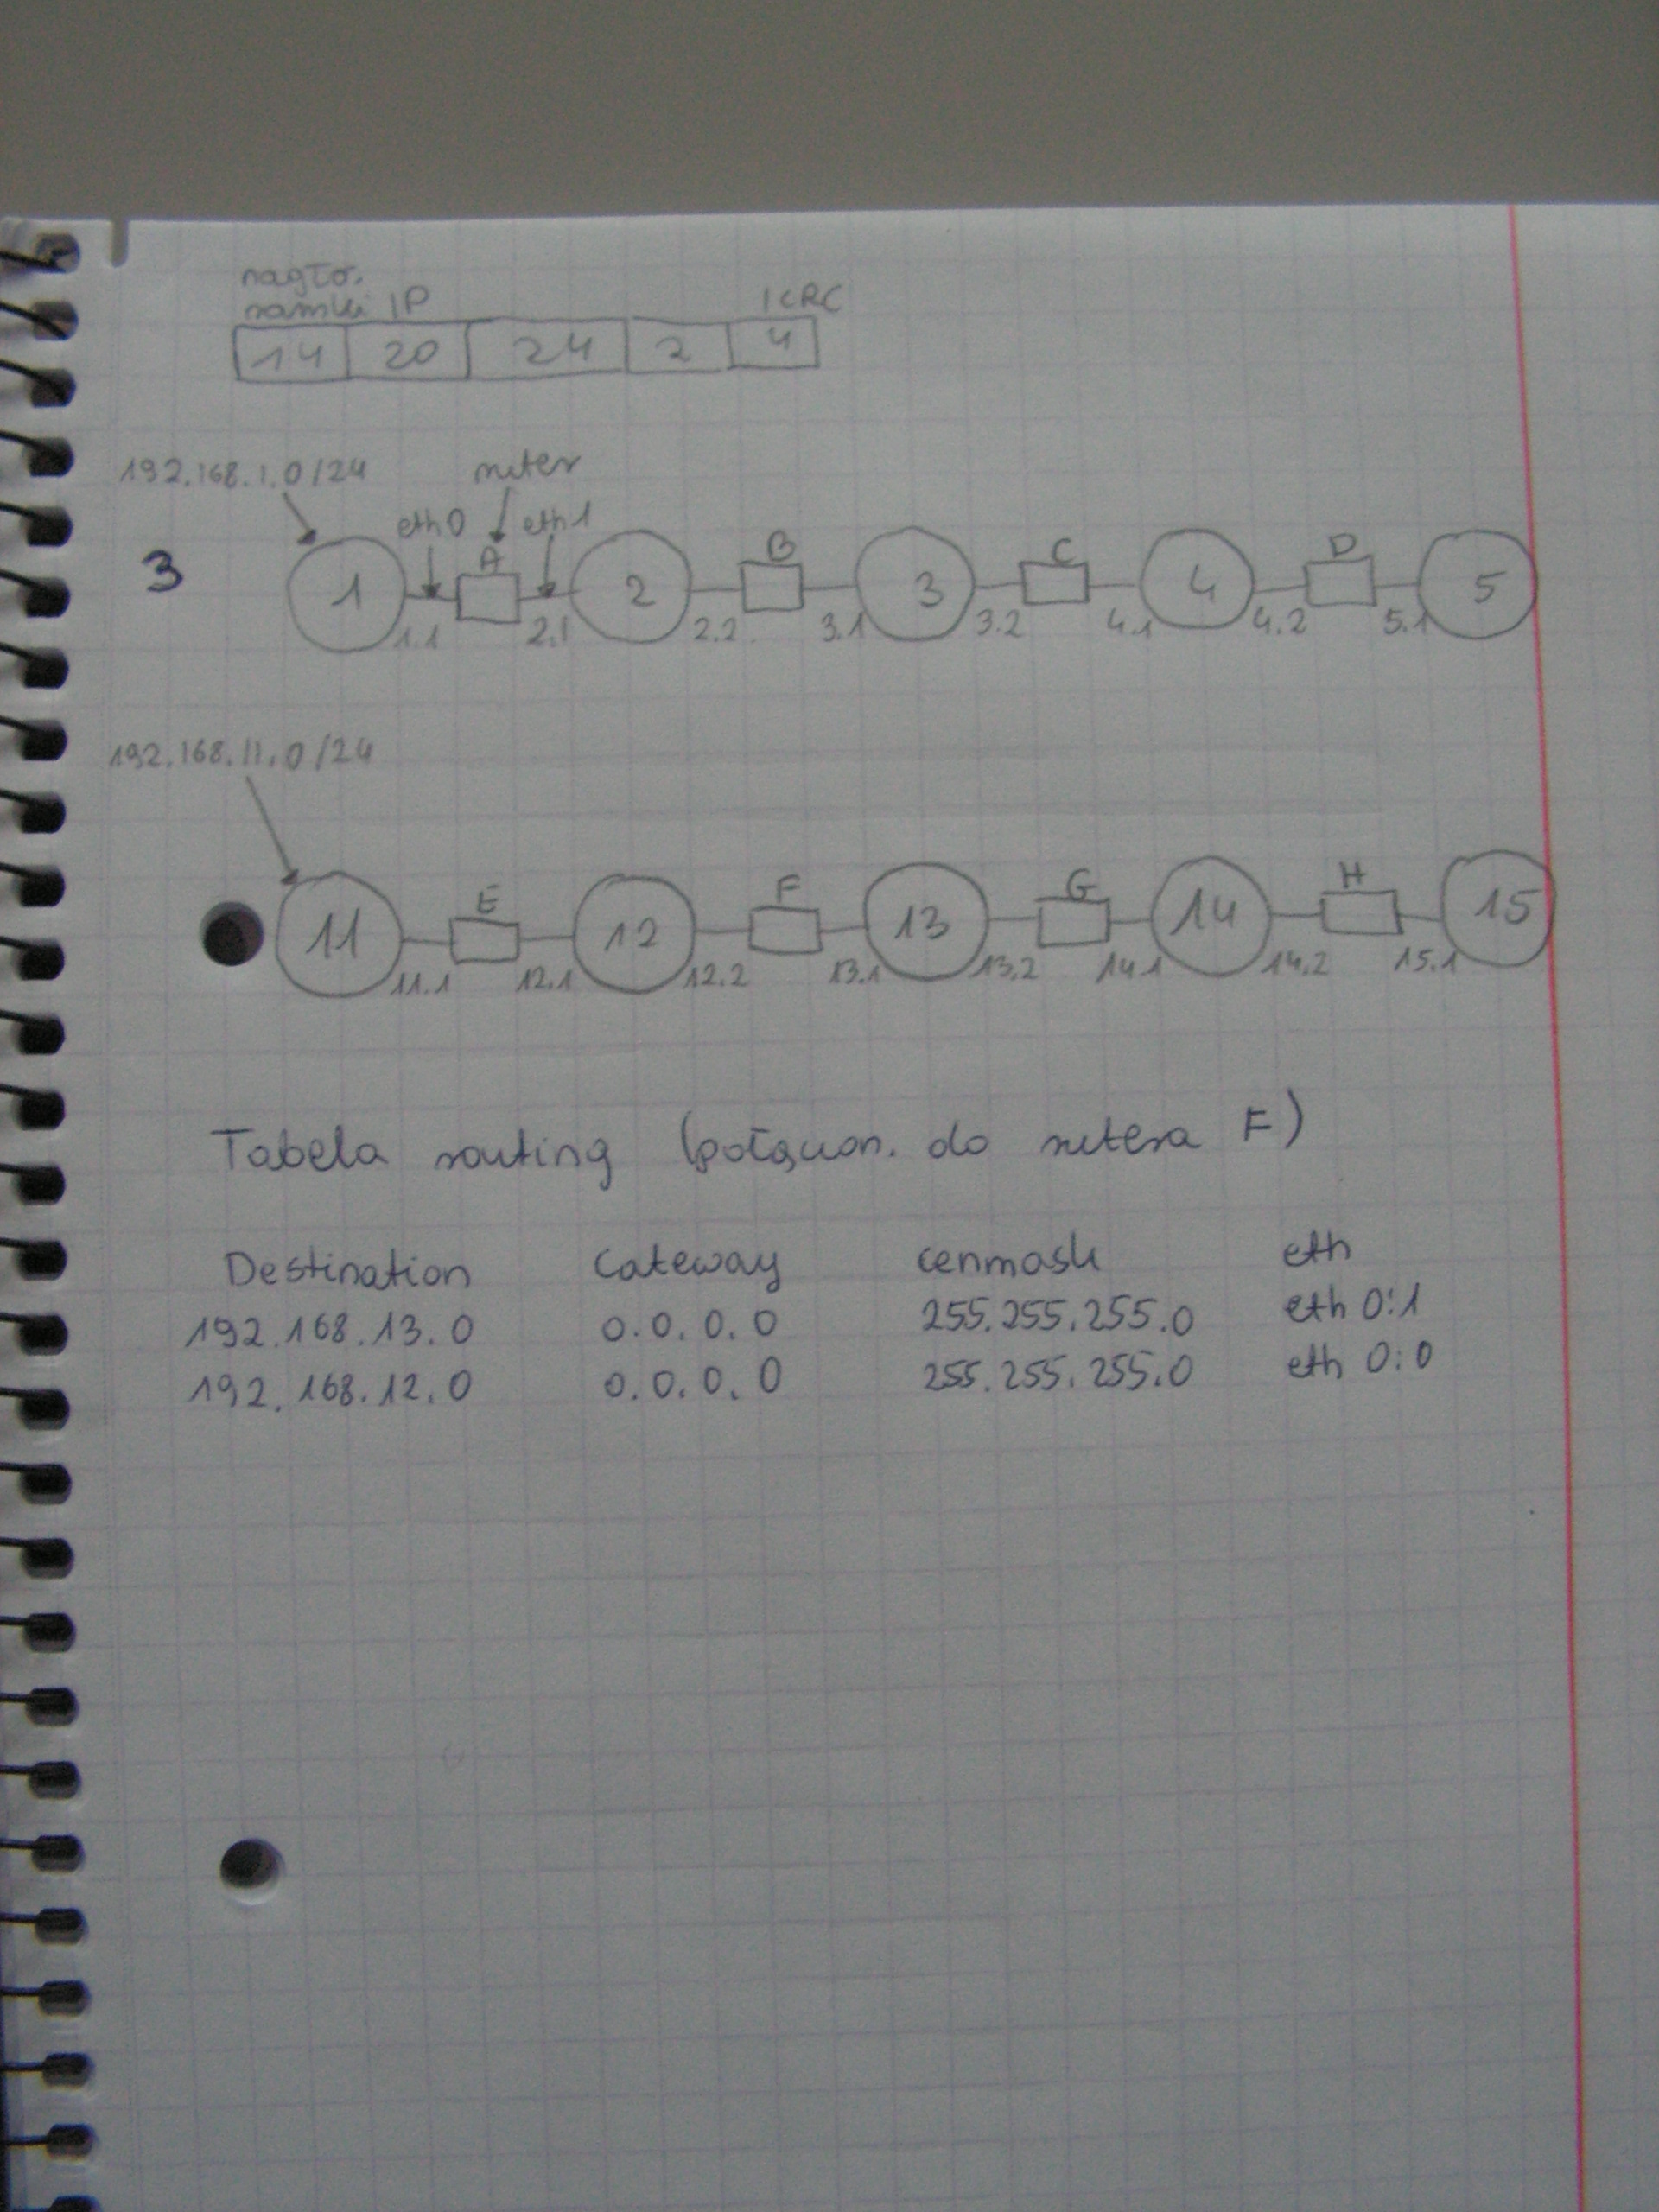 nagło.
ramki IP | CRC
14 20 24 2 4
192.168.1.0/24 ruter
eth0 eth1
3 1 A 2 B 3 C 4 D 5
1.1 2.1 2.2 3.1 3.2 4.1 4.2 5.1
192.168.11.0/24
11 E 12 F 13 G 14 H 15
11.1 12.1 12.2 13.1 13.2 14.1 14.2 15.1
Tabela routing (połączon. do rutera F)
Destination Gateway Genmask eth
192.168.13.0 0.0.0.0 255.255.255.0 eth 0:1
192.168.12.0 0.0.0.0 255.255.255.0 eth 0:0